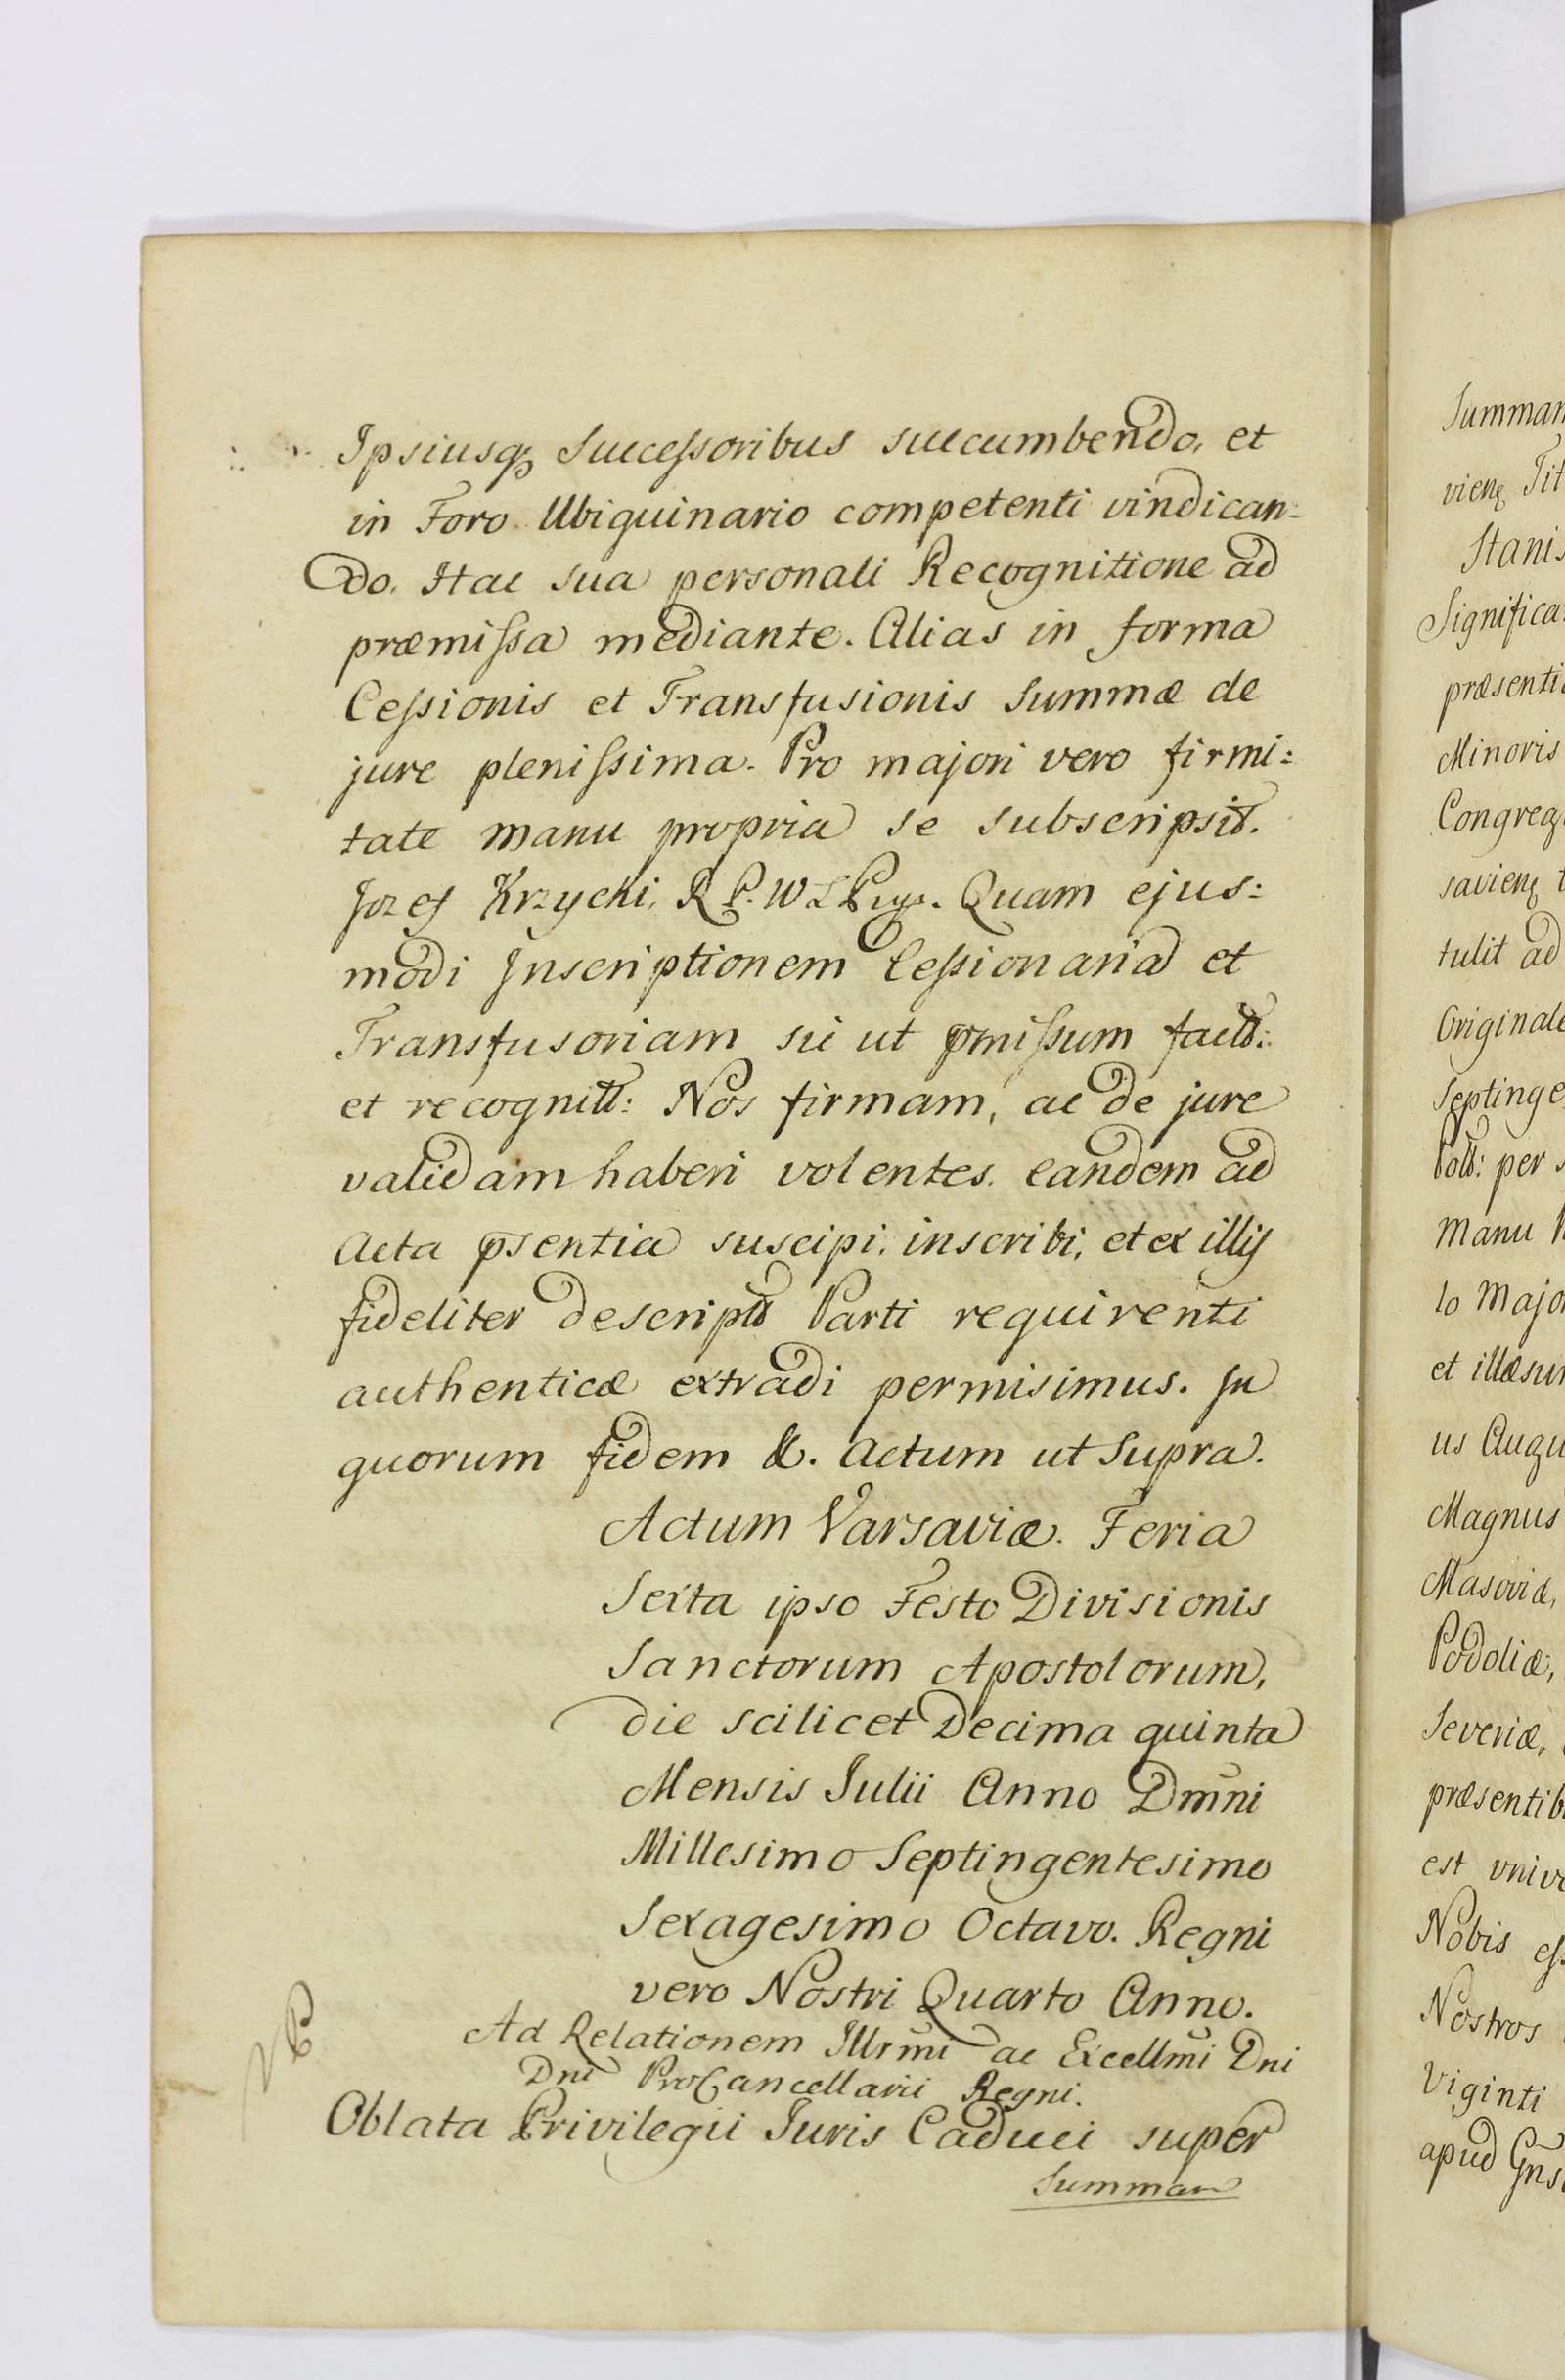 Ipsiusq̨ Succeſsoribus succumbendo, et
in Foro Ubiquinario competenti vindican=
do. Hac sua personali Recognitione ad
præmiſsa mediante. Alias in forma
Ceſsionis et Transfusionis Summæ de
jure pleniſsima. Pro majori vero firmi:
tate manu propria se subscripsit.
Jozef Krzycki, R P. W L Pryn. Quam ejus:
modi Inscriptionem Ceſsionaria et
Transfusoriam sic ut pmiſsum factt:
et recognitt: Nos firmam, ac de jure
validam haberi volentes. eandem ad
Acta psentia suscipi, inscribi, et ex illis
fideliter descript Parti requirenti
authenticæ extradi permisimus. In
quorum fidem &. Actum ut Supra.
Actum Varsaviæ. Feria
Sexta ipso Festo Divisionis
Sanctorum Apostolorum,
die scilicet Decima quinta
Mensis Julii Anno Dnni
Millesimo Septingentesimo
Sexagesimo Octavo. Regni
vero Nostri Quarto Anno.
Ad Relationem Illrmi ac Excellmi Dni
Dni ProCancellarii Regni.
Oblata Privilegii Juris Caduci super
Summam
Summam
vien Tit
Stanis
Significa
præsenti
Minoris
Congreg
savien
tulit ad
Originale
Septinge
Poll: per
Manu
lo Major
et illæsu
us Augu
Magnus
Masoviæ,
Podoliæ,
Severiæ,
præsentib
est univ
Nobis eſ
Nostros
Viginti
apud Gns